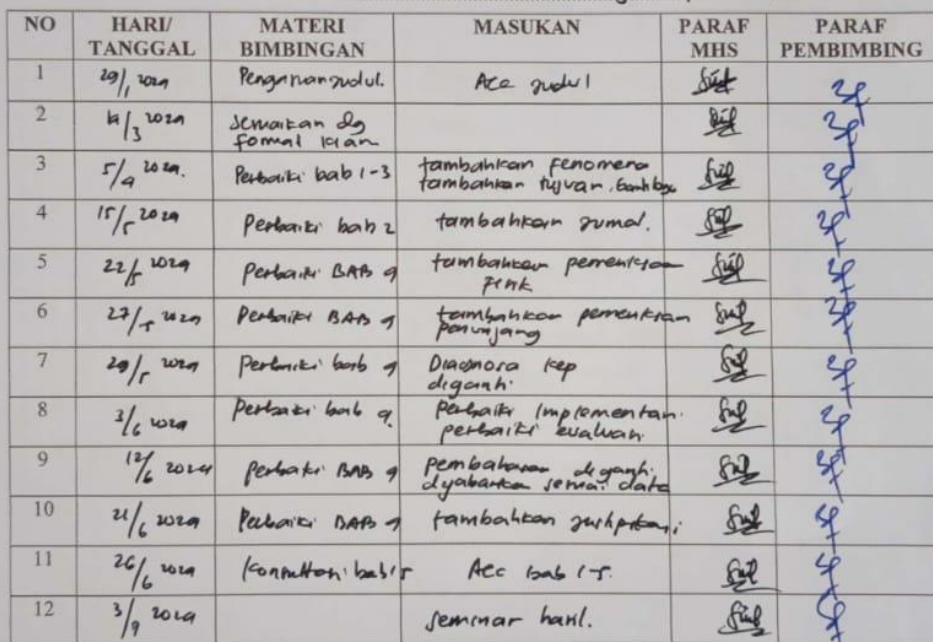 NO HARI/ TANGGAL MATERI BIMBINGAN MASUKAN PARAF MHS PARAF PEMBIMBING
1 29/1 2024 Pengajuan judul. Acc judul
2 14/3 2024 Sesuaikan dg format
3 5/4 2024. Perbaiki bab 1-3 tambahkan fenomena
tambahkan tujuan
4 15/5 2024 Perbaiki bab 2 tambahkan jurnal.
5 22/5 2024 Perbaiki BAB 4 tambahkan pemeriksaan
Fisik
6 27/5 2024 Perbaiki BAB 4 tambahkan pemeriksaan
penunjang
7 29/5 2024 Perbaiki bab 4 Diagnosa kep
diganti.
8 3/6 2024 Perbaiki bab 4. Perbaiki implementasi.
perbaiki evaluasi
9 12/6 2024 Perbaiki BAB 4 pembahasan diganti.
sesuai data
10 21/6 2024 Perbaiki BAB 4 tambahkan
11 26/6 2024 Konsultasi bab 1-5 Acc bab 1-5.
12 3/9 2024 Seminar hasil.